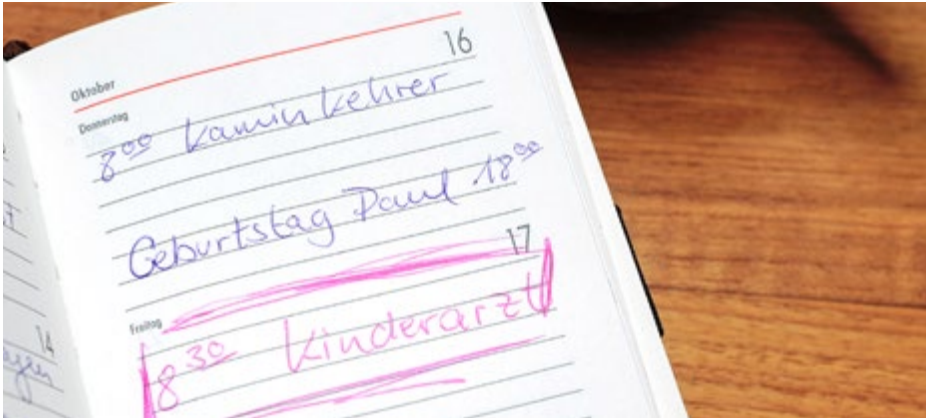 16
Oktober
Donnerstag
8⁰⁰ Kaminkehrer
Geburtstag Paul 18⁰⁰
17
Freitag
8³⁰ Kinderarzt
14